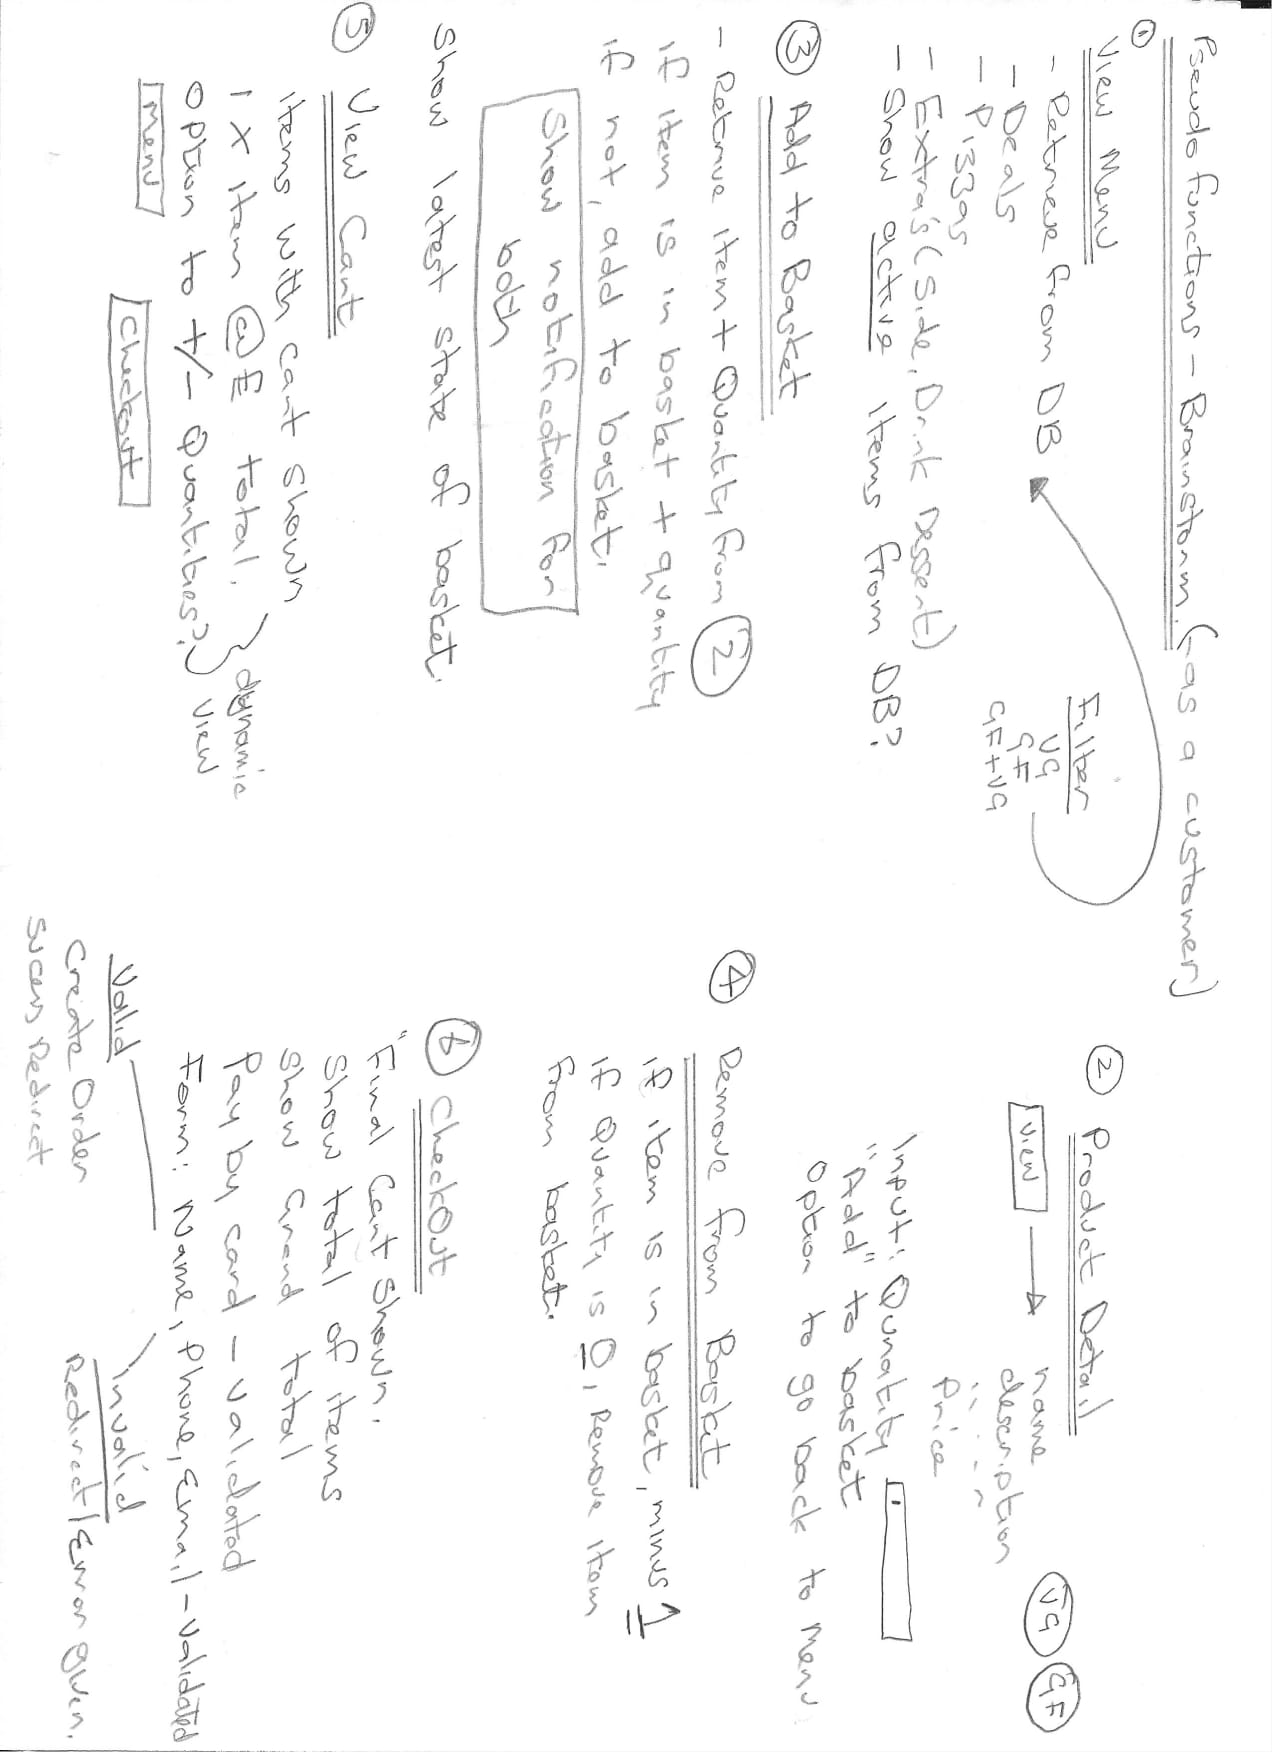 Pseudo functions - Brainstorm. (-as a customer)
①
View Menu
- Retrieve from DB
- Deals
- Pizzas
- Extra's (Side, Drink Dessert)
- Show active items from DB?
Filter
VG
GF
GF+VG
② Product Detail
View
name
description
Price
VG GF
Input: Qunatity 1
"Add" to basket
Option to go back to menu
③ Add to Basket
- Retrive item + Quantity from ②
if item is in basket + quantity
if not, add to basket.
Show notification for
both
Show latest state of basket.
④ Remove from Basket
if item is in basket, minus 1
if Quantity is 0, Remove item
from basket.
⑤ View Cart
items with cart shown
1 x item @ £ total.
Option to +/- Quantities?
dynamic
view
Menu
Checkout
⑥ CheckOut
"Final Cart Shown.
Show total of items
Show Grand total
Pay by card - validated
Form: Name, Phone, Email - validated
Valid
Create Order
Sucess Redirect
Invalid
Redirect/Error given.